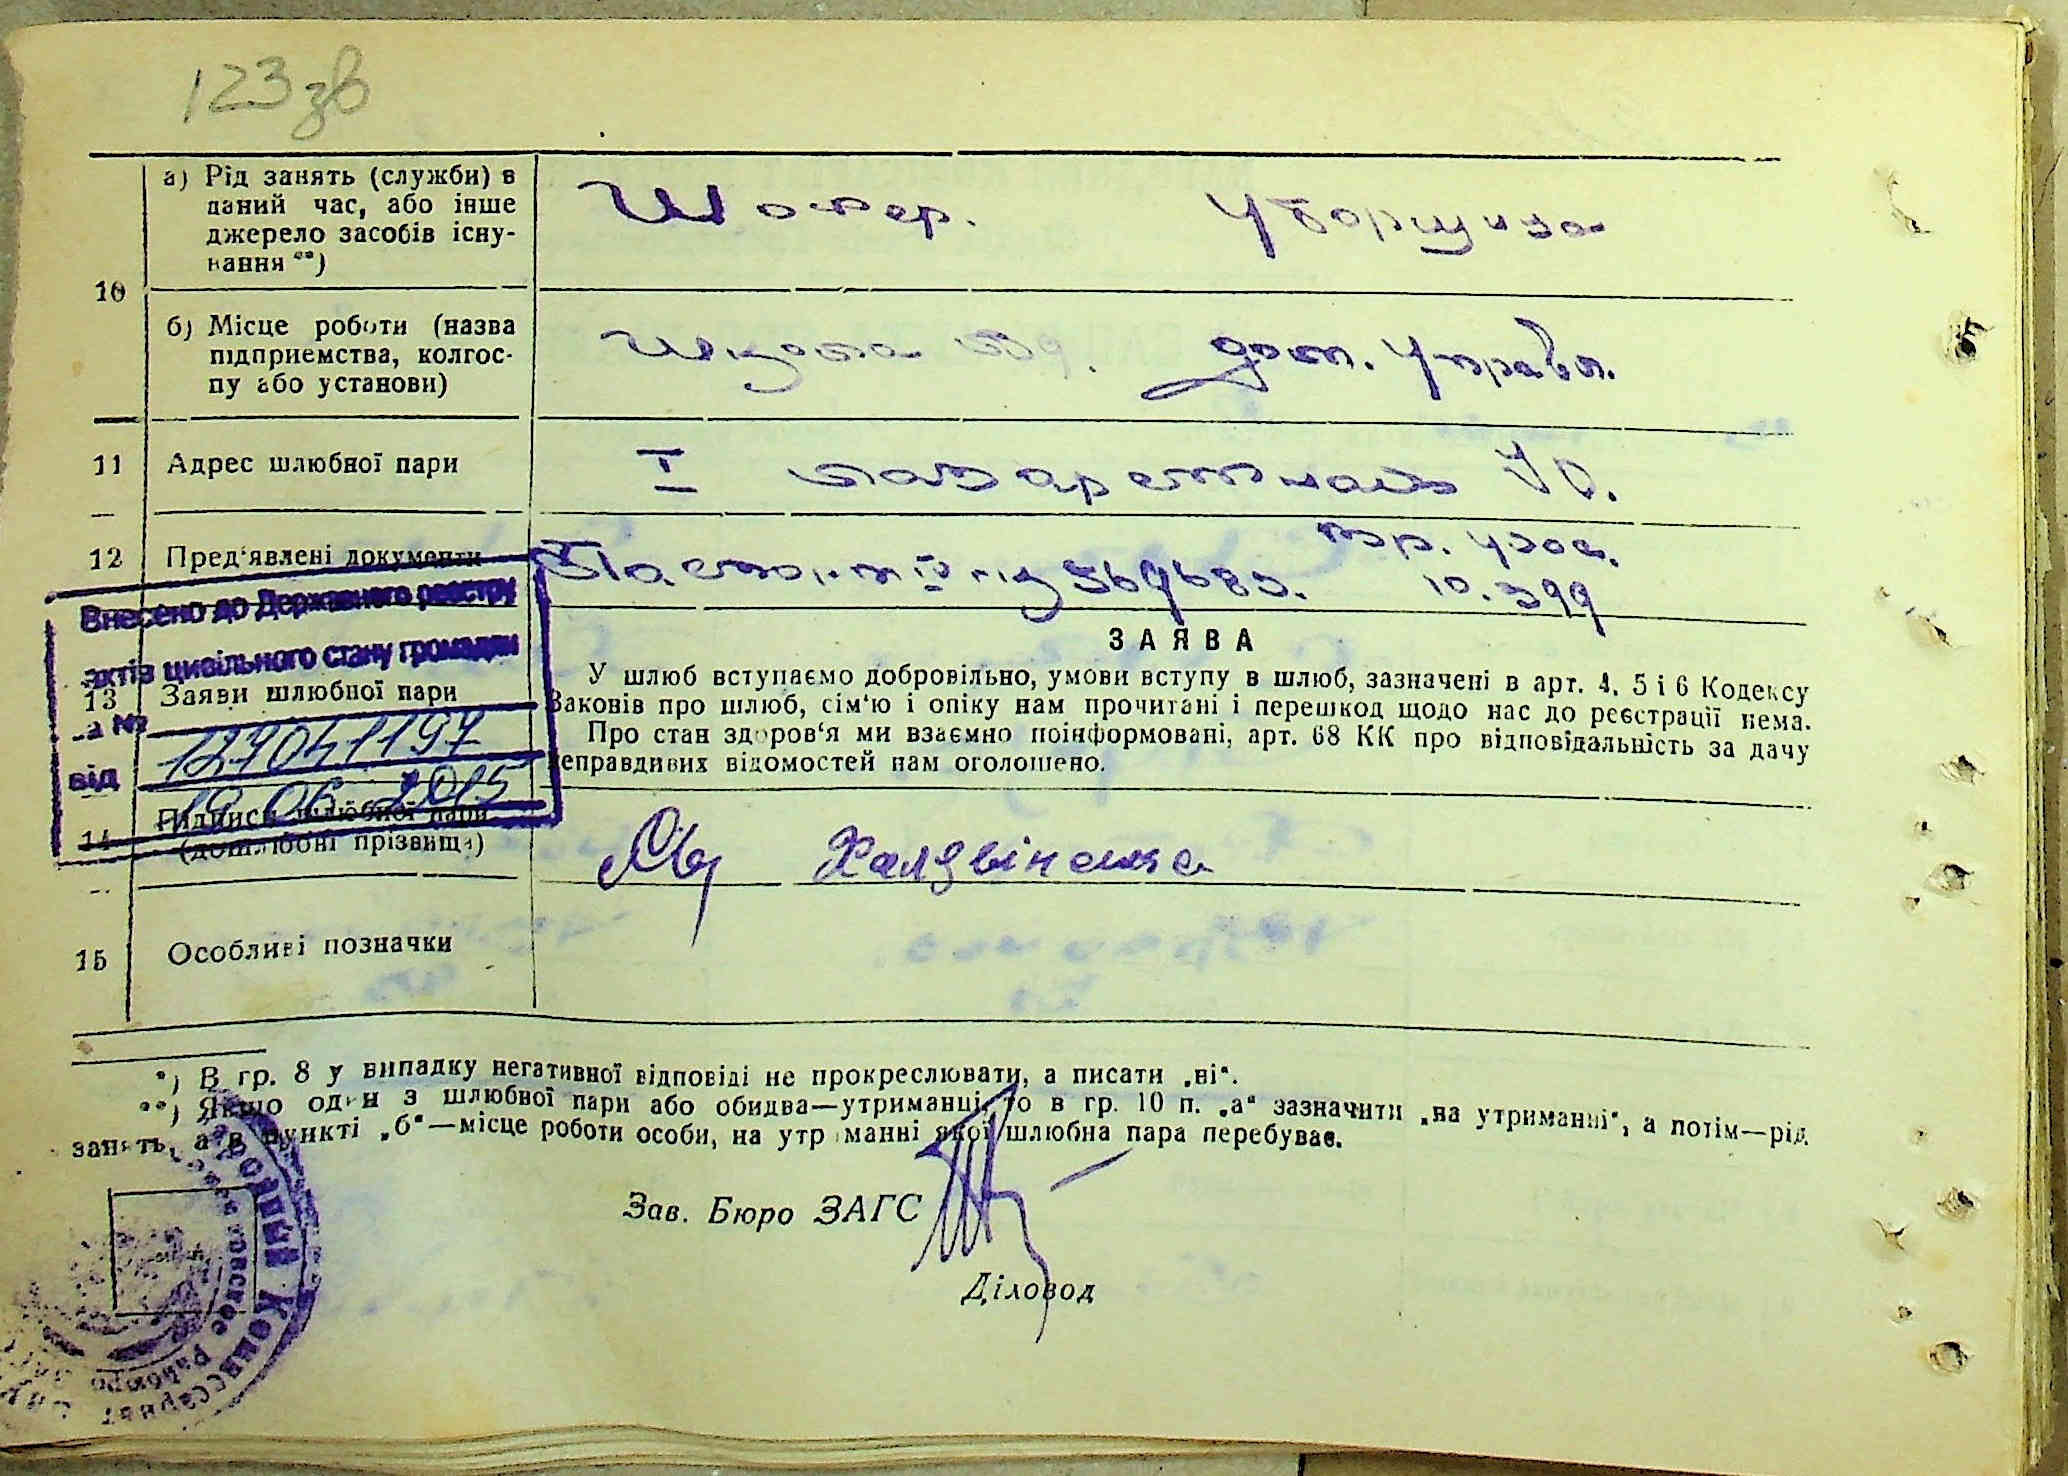 123 зв
10
а) Рід занять (служби) в
даний час, або інше
джерело засобів існу-
вання **)
Шофер.
Уборщица
б) Місце роботи (назва
підприємства, колгос-
пу або установи)
Школа
дом. Управл.
11
Адрес шлюбної пари
I лазаретная 10.
12
Пред'явлені документи
10.399
Внесено до Державного реєстру
актів цивільного стану громадян
за №
127041197
від
19 06 2015
13
Заяви шлюбної пари
ЗАЯВА
У шлюб вступаємо добровільно, умови вступу в шлюб, зазначені в арт. 4, 5 і 6 Кодексу
Законів про шлюб, сім'ю і опіку нам прочитані і перешкод щодо нас до реєстрації нема.
Про стан здоров'я ми взаємно поінформовані, арт. 68 КК про відповідальність за дачу
неправдивих відомостей нам оголошено.
14
Підписи шлюбної пари
(дошлюбні прізвища)
15
Особливі позначки
*) В гр. 8 у випадку негативної відповіді не прокреслювати, а писати „ні“.
**) Якщо один з шлюбної пари або обидва—утриманці, то в гр. 10 п. „а“ зазначити „на утриманні“, а потім—рід
занять, а в пункті „б“—місце роботи особи, на утриманні якої шлюбна пара перебуває.
Зав. Бюро ЗАГС
Діловод
Комиссариат